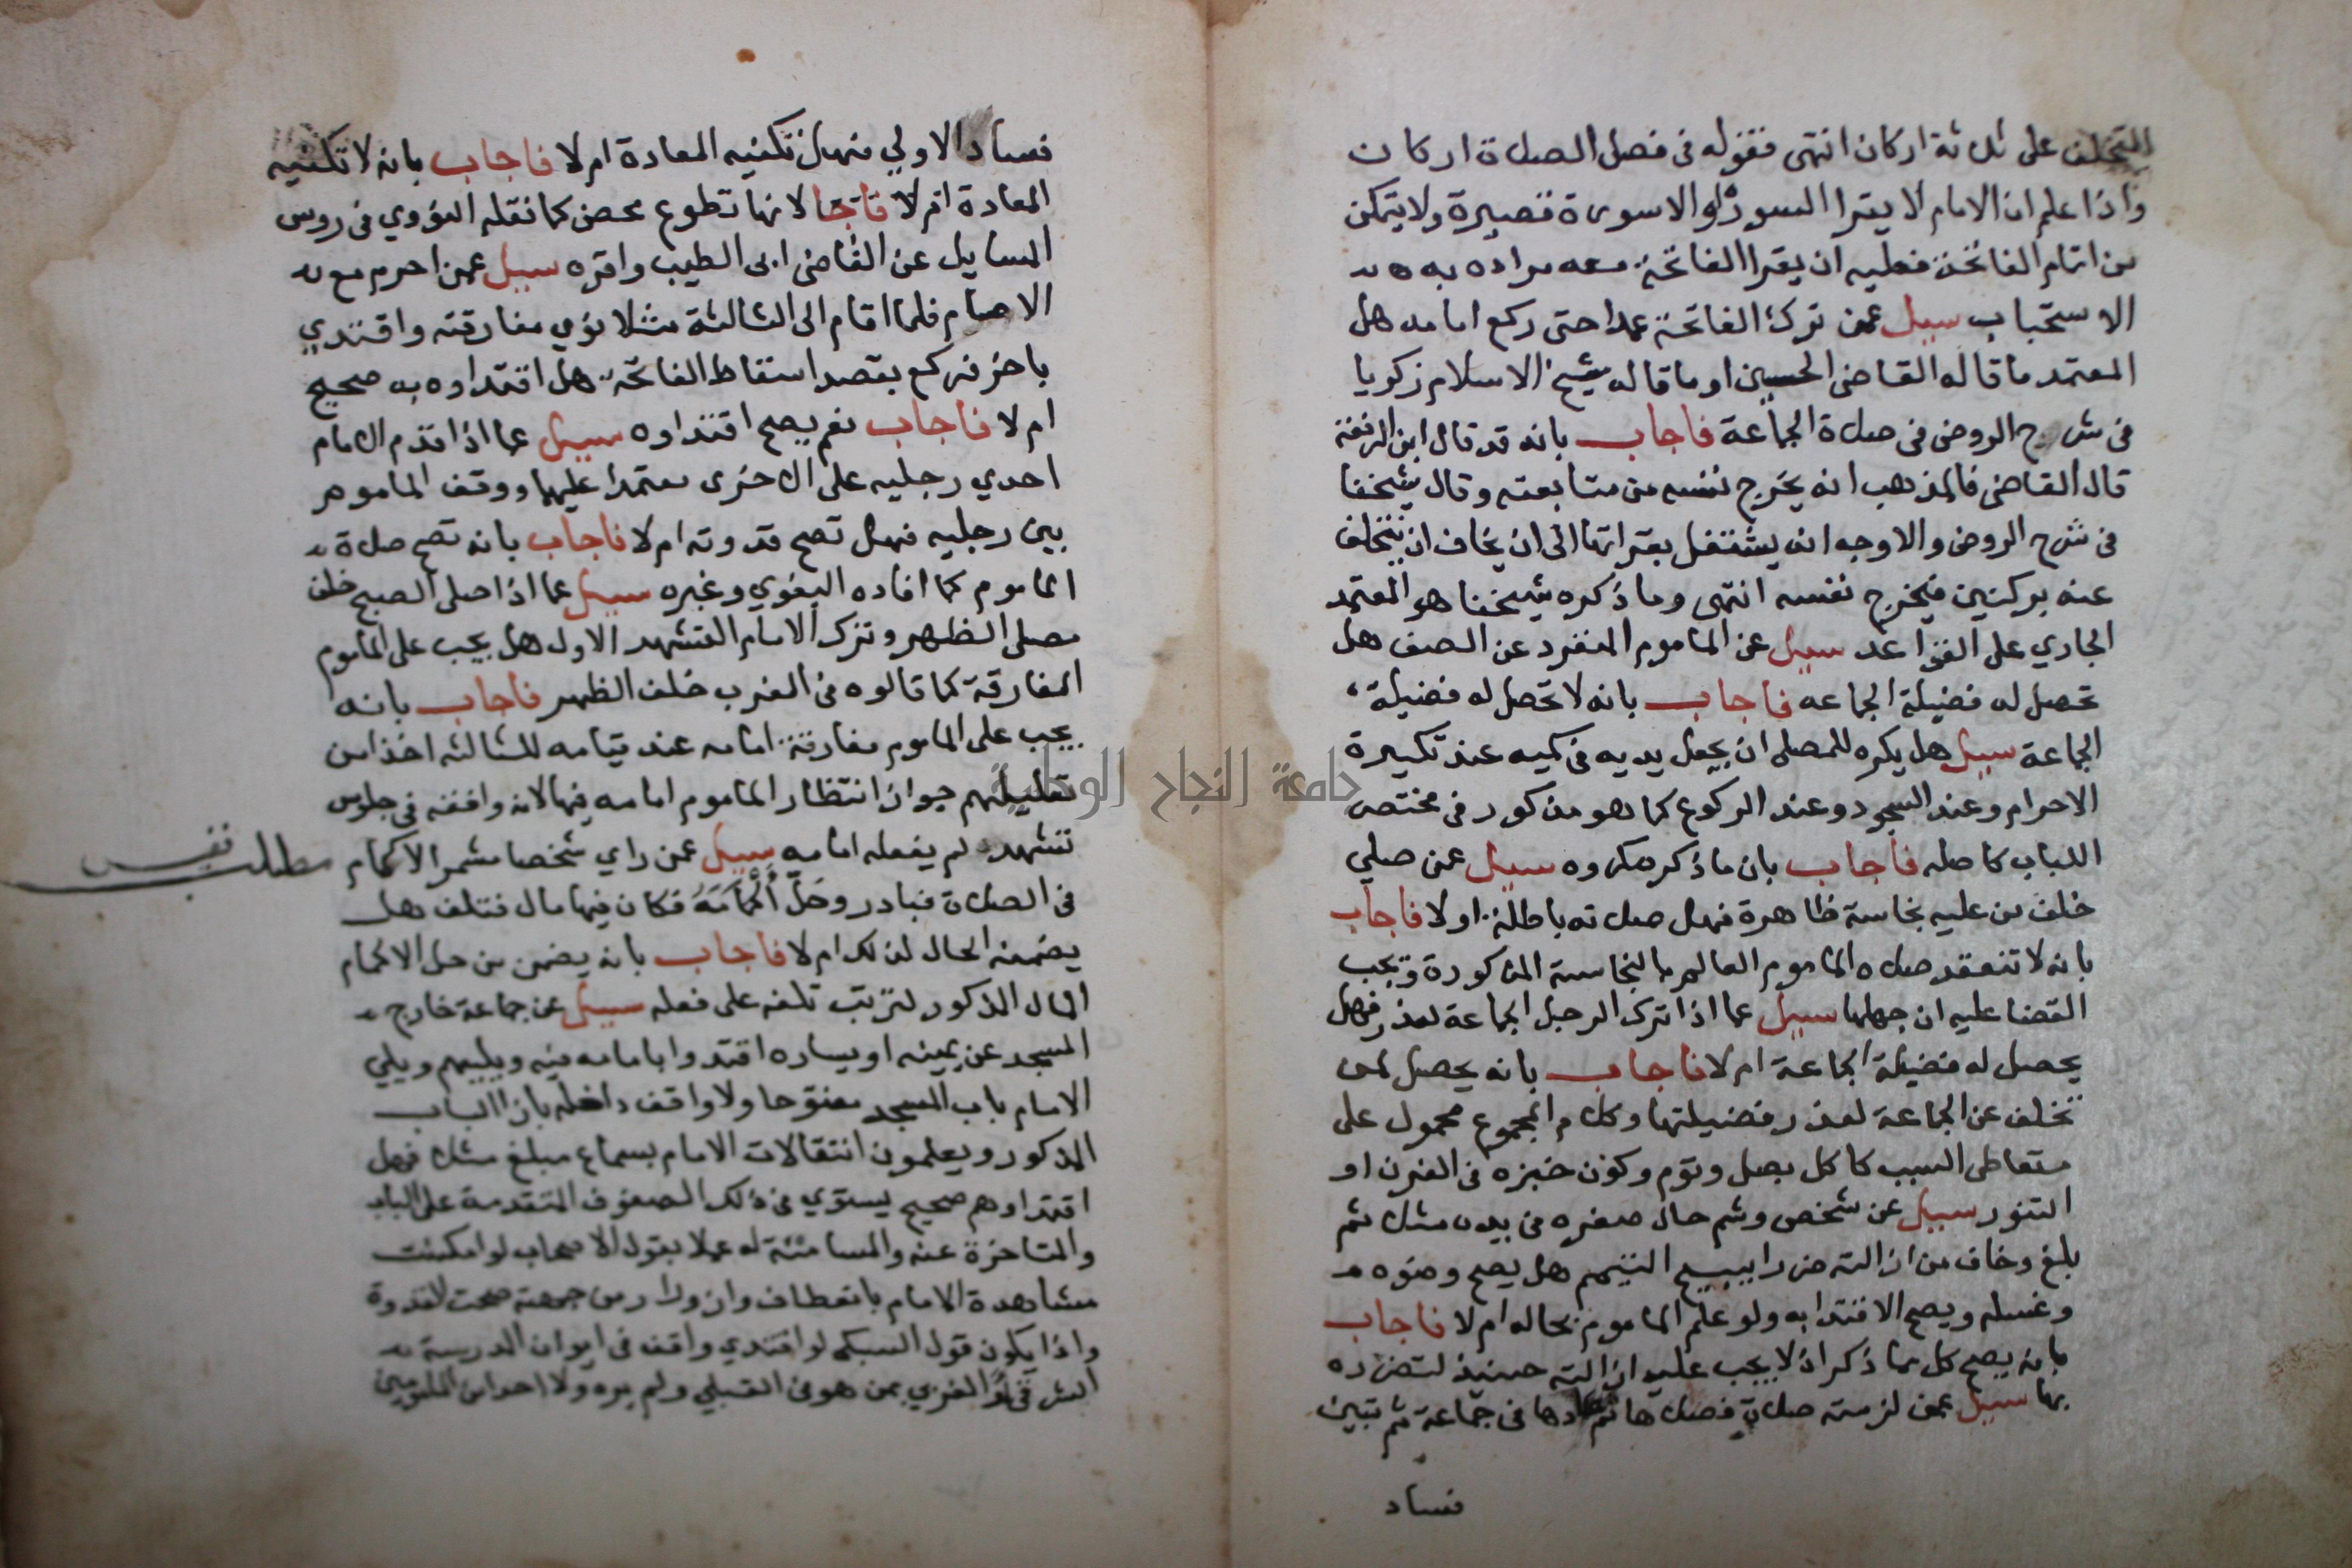 التخلف على ثلاثة اركان انتهى فقوله فى فصل الصلاة اركان
واذا علم ان الامام لا يقرا السورة او الا سورة قصيرة ولا يتمكن
من اتمام الفاتحة فعليه ان يقرا الفاتحة معه مراده به
الاستحباب سيل عمن ترك الفاتحة عمدا حتى ركع امامه هل
المعتمد ما قاله القاضى الحسين او ما قاله شيخ الاسلام زكريا
فى شرح الروض فى صلاة الجماعة فاجاب بانه قد قال ابن الرفعة
قال القاضى فالمذهب انه يخرج نفسه من متابعته وقال شيخنا
فى شرح الروض والاوجه انه يشتغل بقراتها الى ان يخاف ان يتخلف
عنه بركنين فيخرج نفسه انتهى وما ذكره شيخنا هو المعتمد
الجاري على القواعد سيل عن الماموم المنفرد عن الصف هل
تحصل له فضيلة الجماعه فاجاب بانه لا تحصل له فضيلة
الجماعة سيل هل يكره للمصلى ان يجعل يديه فى كميه عند تكبيرة
الاحرام وعند السجود وعند الركوع كما هو مذكور فى مختصر
اللباب كاصله فاجاب بان ما ذكر مكروه سيل عمن صلي
خلف من عليه نجاسة ظاهرة فهل صلاته باطلة او لا فاجاب
بانه لا تنعقد صلاه الماموم العالم بالنجاسة المذكورة وتجب
القضا عليه ان جهلها سيل عما اذا ترك الرجل الجماعة لعذر فهل
يحصل له فضيلة الجماعة ام لا فاجاب بانه يحصل لمن
تخلف عن الجماعة لعذر فضيلتها وكلام المجموع محمول على
متعاطى السبب كاكل بصل وثوم وكون خبزه فى الفرن او
التنور سيل عن شخص وشم حال صغره فى يده مثلا ثم
بلغ وخاف من ازالته ضررا يبيح التيمم هل يصح وضوه
وغسله ويصح الاقتدا به ولو علم الماموم بحاله ام لا فاجاب
بانه يصح كل مما ذكر اذ لا يجب عليه ازالته حينيذ لتضرره
بها سيل عمن لزمته صلاة فصلاها ثم اعادها فى جماعة ثم تبين
فساد
فساد الاولي فهل تكفيه المعادة ام لا فاجاب بانه لا تكفيه
المعادة ام لا فاجا لانها تطوع محض كما نقله النووي فى روس
المسايل عن القاضى ابى الطيب واقره سيل عمن احرم مع
الامام فلما اقام الى الثالثة مثلا نوي مفارقته واقتدي
باخر فركع بقصد اسقاط الفاتحة هل اقتداوه به صحيح
ام لا فاجاب نعم يصح اقتداوه سيل عما اذا قدم الامام
احدي رجليه على الاخرى معتمدا عليهما ووقف الماموم
بين رجليه فهل تصح قدوته ام لا فاجاب بانه تصح صلاة
الماموم كما افاده البغوي وغيره سيل عما اذا صلى الصبح خلف
مصلى الظهر وترك الامام التشهد الاول هل يجب على الماموم
المفارقة كما قالوه فى المغرب خلف الظهر فاجاب بانه
يجب على الماموم مفارقة امامه عند قيامه للثالثه اخذا من
تعليلهم جواز انتظار الماموم امامه فيها لانه وافقه فى جلوس
تشهد لم يفعله امامه سيل عمن راي شخصا مشمر الاكمام
مطلب نفيس
فى الصلاة فبادر وحل اكمامه فكان فيها مال فتلف هل
يضمنه الحال لذلك ام لا فاجاب بانه يضمن من حل الاكمام
المال المذكور لترتب تلفه على فعله سيل عن جماعة خارج
المسجد عن يمينه او يساره اقتدوا بامامه فيه ويليهم ويلي
الامام باب المسجد مفتوحا ولا واقف داخله بازا الباب
المذكور ويعلمون انتقالات الامام بسماع مبلغ مثلا فهل
اقتداوهم صحيح يستوي فى ذلك الصفوف المتقدمة على الباب
والمتاخرة عنه والمسامتة له عملا بقول الاصحاب لو امكنت
مشاهدة الامام بانعطاف وازورار من جهته صحت القدوة
واذا يكون قول السبكى لو اقتدي واقف فى ايوان المدرسة
الشرقى او الغربي بمن هو فى القبلي ولم يره ولا احدا من المامومين